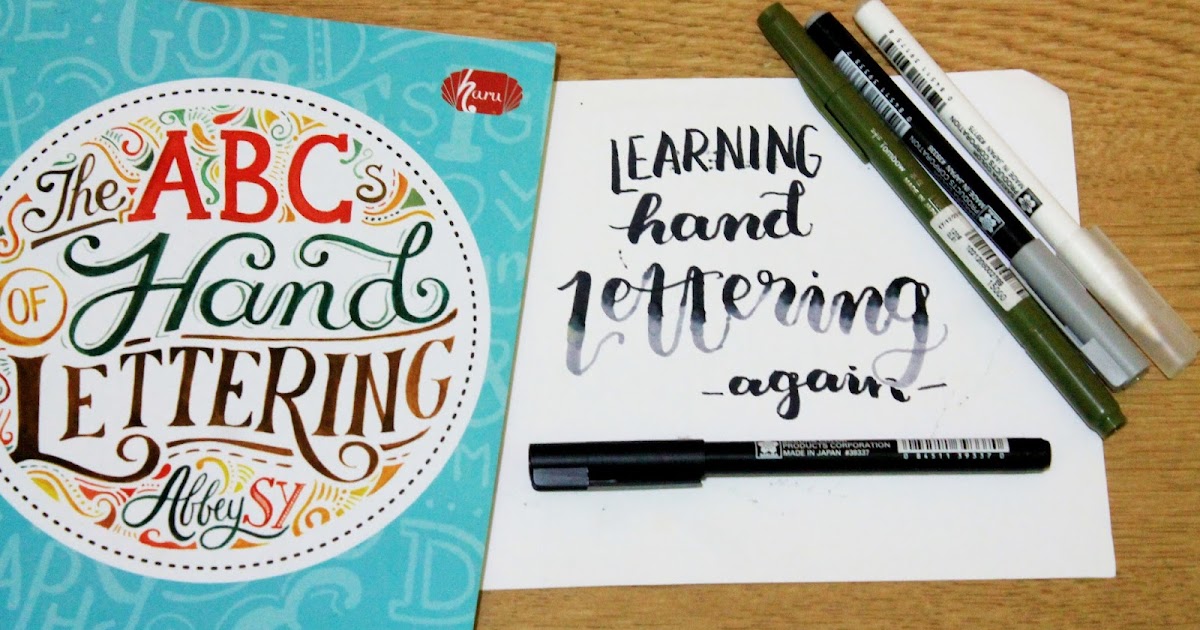 The ABCs
OF Hand
LETTERING
Abbey SY
huru
LEARNING
hand
lettering
-again-
PRODUCTS CORPORATION
MADE IN JAPAN #39337
0 84511 39337 0